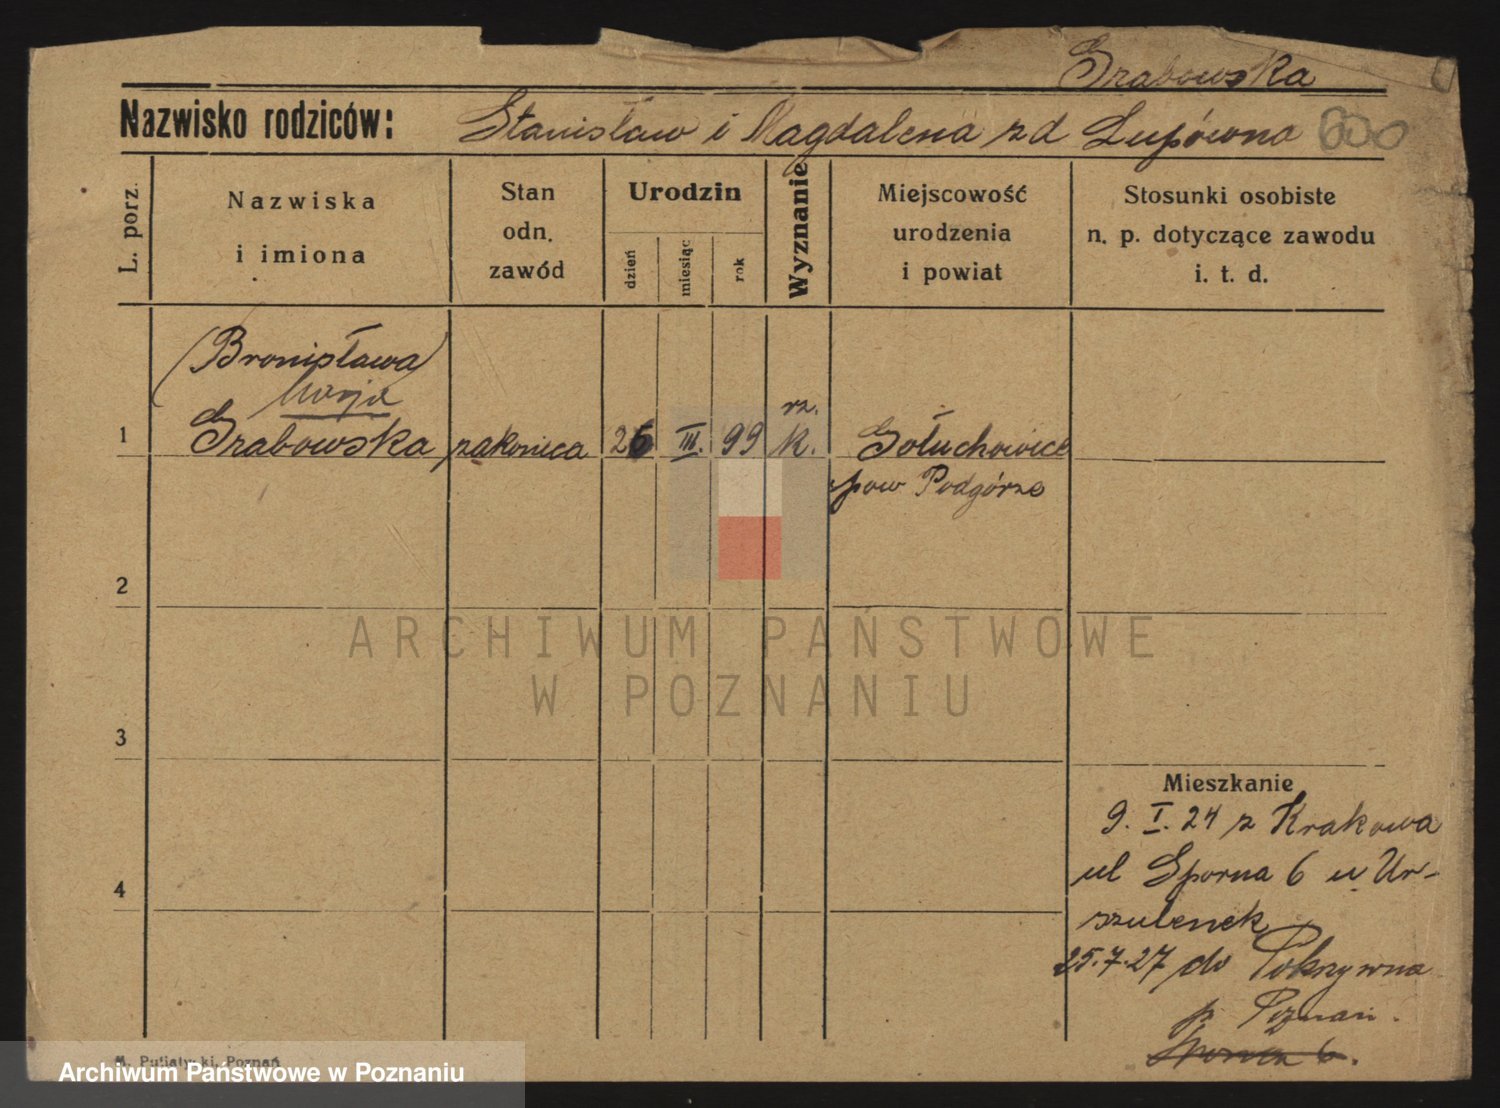 Grabowska
Nazwisko rodziców: Stanisław i Magdalena zd Lupówna 600
L. porz. Nazwiska i imiona Stan odn. zawód Urodzin dzień miesiąc rok Wyznanie Miejscowość urodzenia i powiat Stosunki osobiste n. p. dotyczące zawodu i. t. d.
(Bronisława)
Marja
rz.
1 Grabowska zakonica 26 III. 99 k. Gołuchowice
pow Podgórze
2
ARCHIWUM PAŃSTWOWE
W POZNANIU
3
Mieszkanie
9. I. 24 z Krakowa
4 ul Sporna 6 u Ur-
szulenek
25.7.27 do Pokrzywna
p. Poznań.
Sporna 6.
M. Putiatycki, Poznań
Archiwum Państwowe w Poznaniu